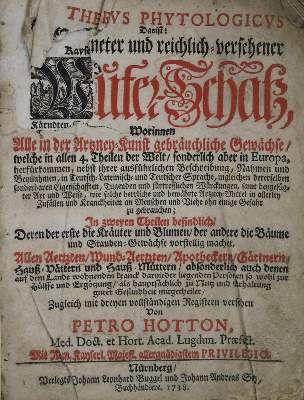 THEBVS PHYTOLOGICVS
Daviist:
Kays neter und reichlich-versehener
Kärndten
Worinnen
Alle in der Artzney-Kunst gebräuchliche Gewächse/
welche in allen 4. Theilen der Welt/ sonderlich aber in Europa,
herfürkommen, nebst ihrer ausführlichen Beschreibung/ Nahmen und
Beynahmen, in Teutsch-Lateinisch- und
sonderbaren Eigenschafften, Tugenden und fürtrefflichen Würckungen, samt beygefüg-
ter Art und Weise, wie solche herrliche und bewährte Artzney-Mittel in allerley
Zufällen und Kranckheiten an Menschen und Viehe ohn einige Gefahr
zu gebrauchen;
In zweyen Theilen befindlich/
Deren der erste die Kräuter und Blumen/ der andere die Bäume
und Stauden-Gewächse vorstellig macht.
Allen Aertzten/ Wund-Aertzten/ Apotheckern/ Gärtnern/
Hauß-Vättern und Hauß-Müttern/ absonderlich auch denen
auf dem Lande wohnenden kranck darnieder liegenden Personen so wohl zur
Hülffe und Ergötzung/ als hauptsächlich zu Nutz und Erhaltung
guter Gesundheit mitgetheilet/
Zugleich mit dreyen vollständigen Registern versehen
Von
PETRO HOTTON,
Med. Doct. et Hort. Acad. Lugdun. Præfect.
Mit Röm. Kayserl. Majest. allergnädigstem PRIVILEGIO.
Nürnberg/
Verlegts Johann Leonhard Buggel und Johann Andreas Seitz,
Buchhändlere. 1738.